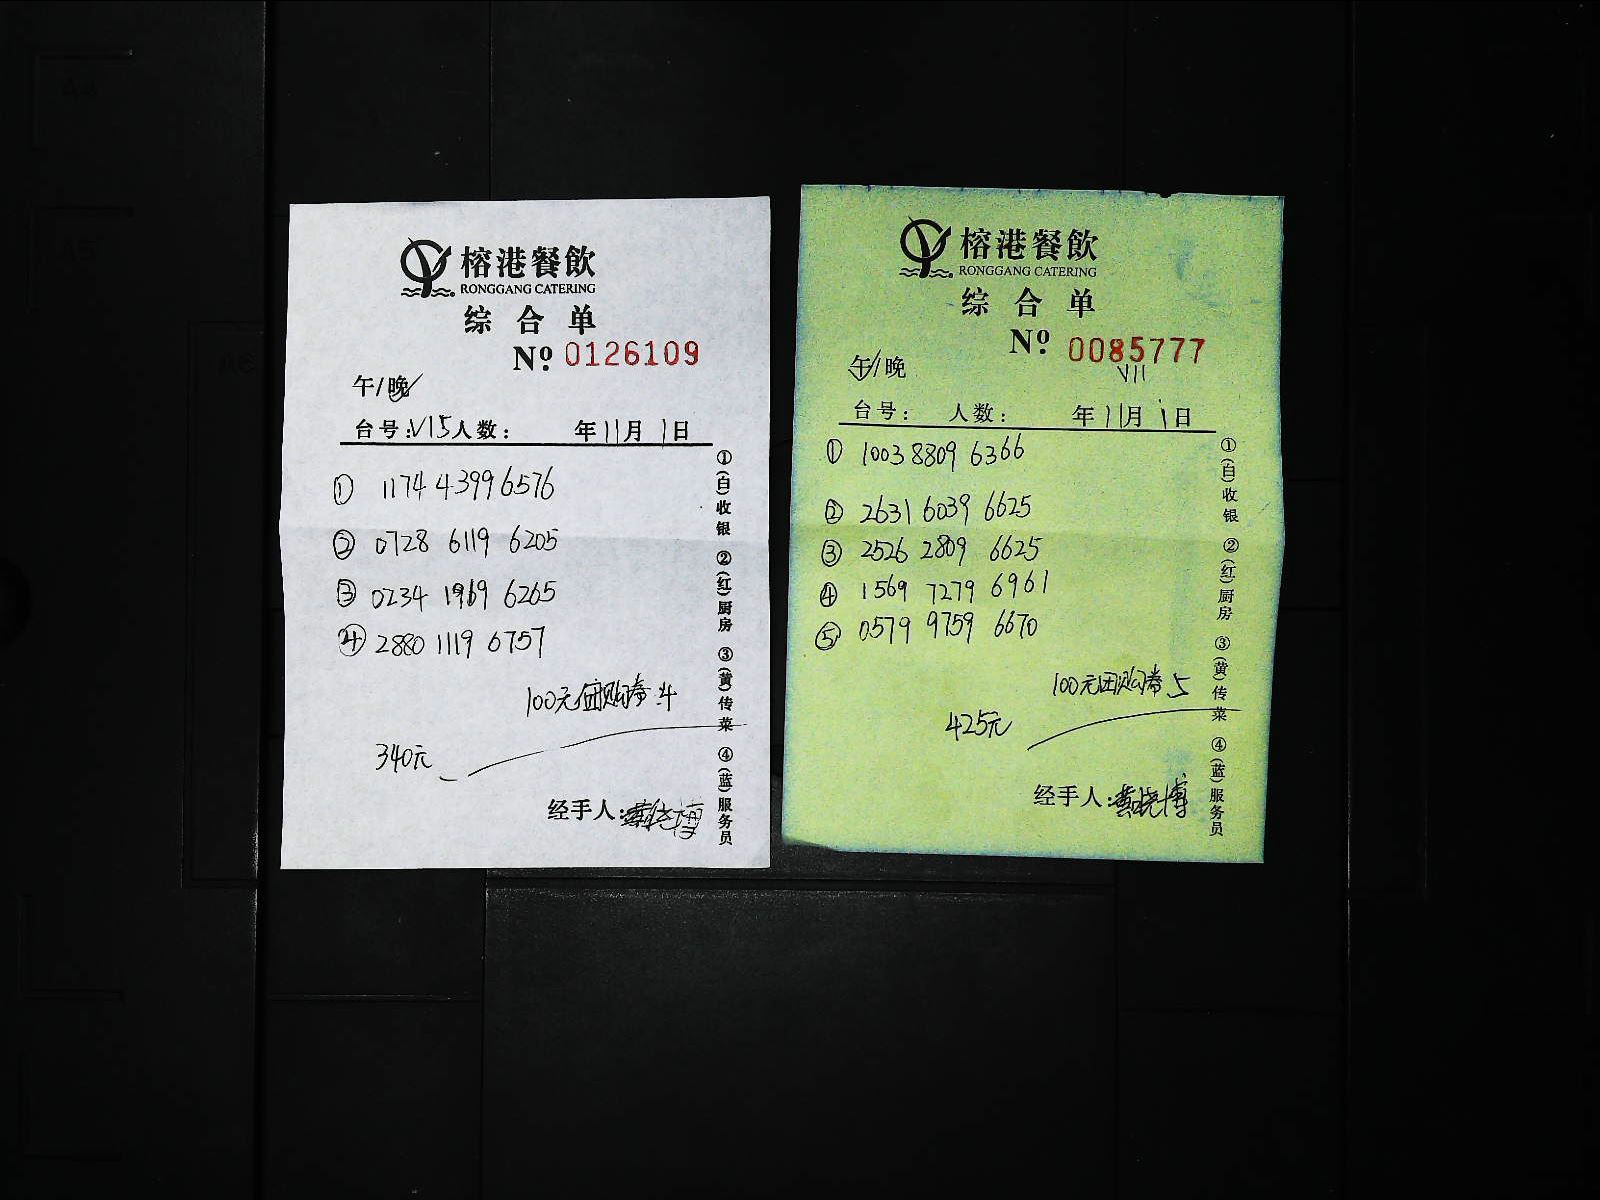 榕港餐飲
RONGGANG CATERING
综合单
Nº 0126109
午/晚
台号:V15 人数: 年11月1日
① 1174 4399 6576
② 0728 6119 6205
③ 0234 1969 6265
④ 2880 1119 6757
100元团购券:4
340元
经手人:黄晓博
①(白)收银 ②(红)厨房 ③(黄)传菜 ④(蓝)服务员
榕港餐飲
RONGGANG CATERING
综合单
Nº 0085777
V11
午/晚
台号: 人数: 年11月1日
① 1003 8809 6366
② 2631 6039 6625
③ 2526 2809 6625
④ 1569 7279 6961
⑤ 0579 9759 6670
100元团购券 5
425元
经手人:黄晓博
①(白)收银 ②(红)厨房 ③(黄)传菜 ④(蓝)服务员